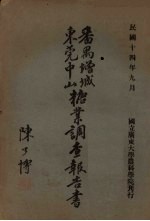 民國十四年九月
番禺增城
東莞中山
糖業調查報告書
國立廣東大學農科學院刊行